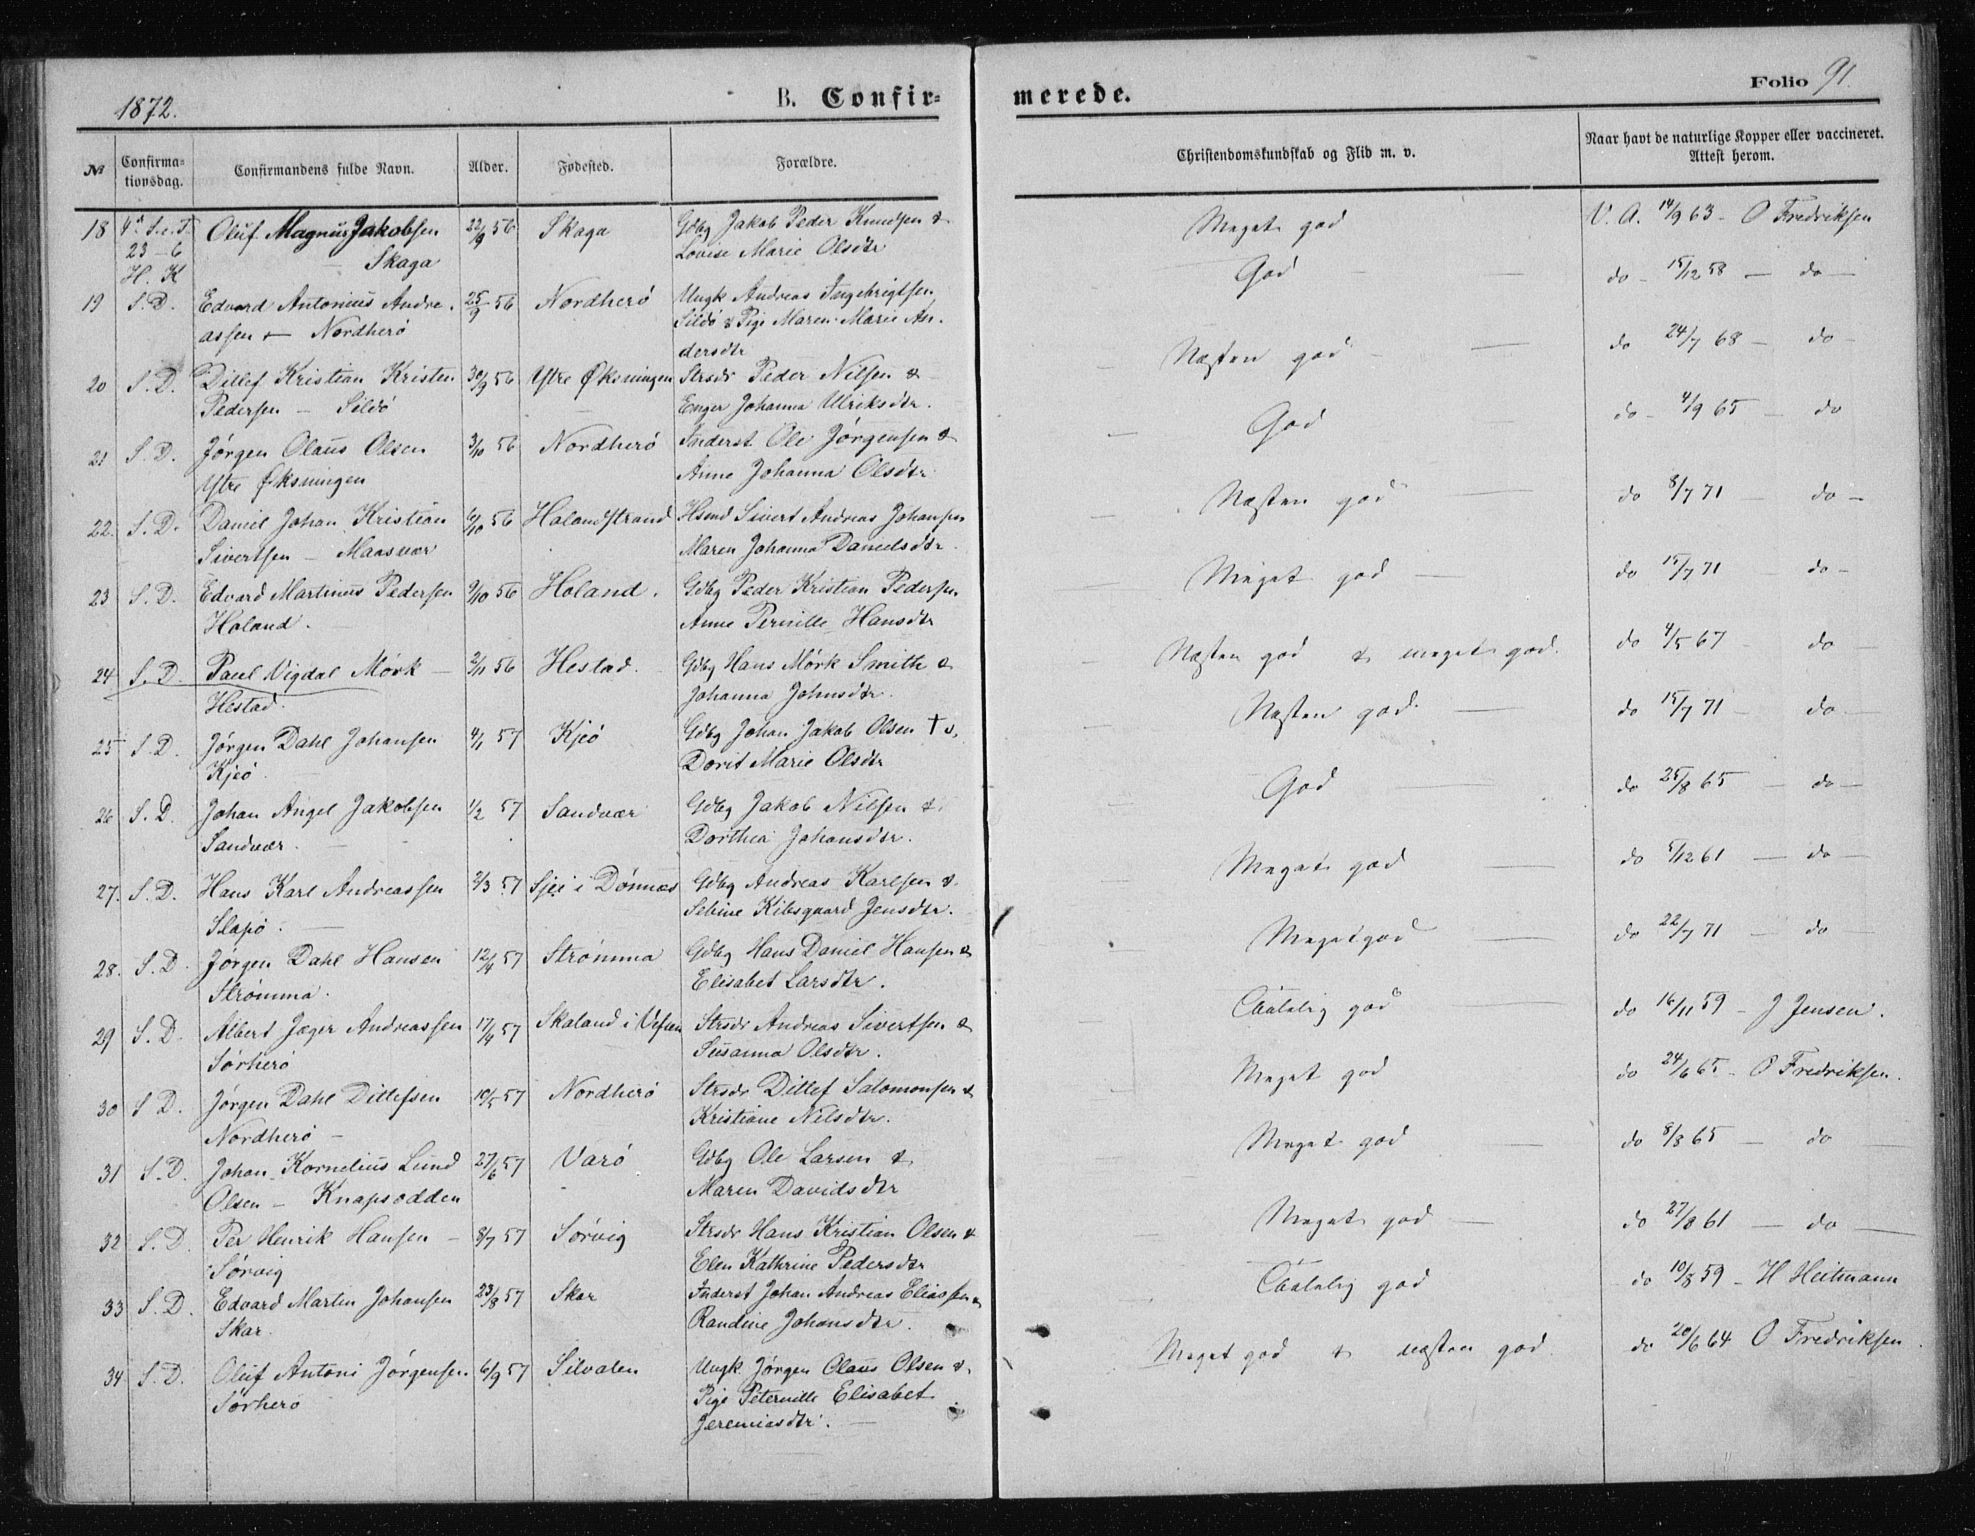 1872.
B. Confir-
merede.
Folio 91.
№
Confirma-
tionsdag.
Confirmandens fulde Navn.
Alder.
Fødested.
Forældre.
Christendomskundskab og Flid m. v.
Naar havt de naturlige Kopper eller vaccineret.
Attest herom.
18 4de S. e. T. Oluf Magnus Jakobsen 22/9 56 Skaga Gdbg Jakob Peder Knudsen &
23-6 Skaga Lovise Marie Olsdtr
H. K
Meget god V. A. 14/9 63 - O Fredriksen
19 S. D. Edvard Antonius Andre- 25/9 56 Nordherö Ungk Andreas Ingebrigtsen
assen - Nordherö Sildö & Pige Maren Marie An-
dersdtr
God do - 15/12 58 - do -
20 S. D. Ditlef Kristian Kristen 30/9 56 Ytre Øksningen Strsdr Peder Nilsen &
Pedersen - Sildö Enger Johanna Ulriksdtr.
Næsten god do 24/7 68 - do -
21 S. D. Jörgen Olaus Olsen 3/10 56 Nordherö Inderst Ole Jörgensen &
Ytre Øksningen Anne Johanna Olsdtr
God do - 4/9 65 - do
22. S. D. Daniel Johan Kristian 6/10 56 Holandstrand Hsmd Sivert Andreas Johansen
Sivertsen - Maasvær Maren Johanna Danielsdtr.
Næsten god do 8/7 71 - do -
23 S. D. Edvard Martinus Pedersen 9/10 56 Holand. Gdbg Peder Kristian Pedersen
Holand. Anne Pernille Hansdtr
Meget god do 15/7 71 - do -
24 S. D. Paul Vigdal Mörk - 2/11 56 Hestad. Gdbg Hans Mörk Smith &
Hestad. Johanna Johnsdtr.
Næsten god & meget god. do 4/5 67 - do
25 S. D. Jörgen Dahl Johansen 4/1 57 Kjeö Gdbg Johan Jakob Olsen † &
Kjeö. Dorit Marie Olsdtr
Næsten god. do 15/7 71 - do
26 S. D. Johan Angel Jakobsen 1/2 57 Sandvær Gdbg Jakob Nilsen &
Sandvær. Dorthea Johansdtr.
God do 25/8 65 - do -
27. S. D. Hans Karl Andreassen 2/3 57 Sjei i Dönnes Gdbg Andreas Karlsen &
Slapö. Sebine Kibsgaard Jensdtr.
Meget god do 5/12 61 - do -
28. S. D. Jörgen Dahl Hansen 12/4 57 Strömma Gdbg Hans Daniel Hansen &
Strömma. Elisabet Larsdtr.
Meget god do 22/7 71 - do -
29 S. D. Albert Jæger Andreassen 17/4 57 Skaland i Vefsen Strsdr Andreas Sivertsen &
Sörherö Susanna Olsdtr.
Taalelig god do 16/11 59 - J Jensen.
30 S D. Jörgen Dahl Ditlefsen 10/5 57 Nordherö Strsdr Ditlef Salomonsen &
Nordherö - Kristiane Nilsdtr.
Meget god do 24/6 65 - O Fredriksen.
31 S. D. Johan Kornelius Lund 27/6 57 Varö Gdbg Ole Larsen &
Olsen - Knapsodden Maren Davidsdtr
Meget god do 8/8 65 - do
32 S. D. Per Henrik Hansen - 8/7 57 Sörvig Strsdr Hans Kristian Olsen &
Sörvig Elen Kathrine Pedersdtr
Meget god do 27/8 61 - do -
33 S. D. Edvard Martin Johansen 23/8 57 Skar Inderst Johan Andreas Eliassen &
Skar. Randine Johansdtr.
Taalelig god do 10/8 59 - H Heitmann
34 S. D. Oluf Antoni Jörgensen 6/9 57 Silvalen Ungk. Jörgen Olaus Olsen &
Sörherö Pige Peternille Elisabet
Jeremiasdtr.
Meget god & næsten god. do 20/6 64 O Fredriksen.